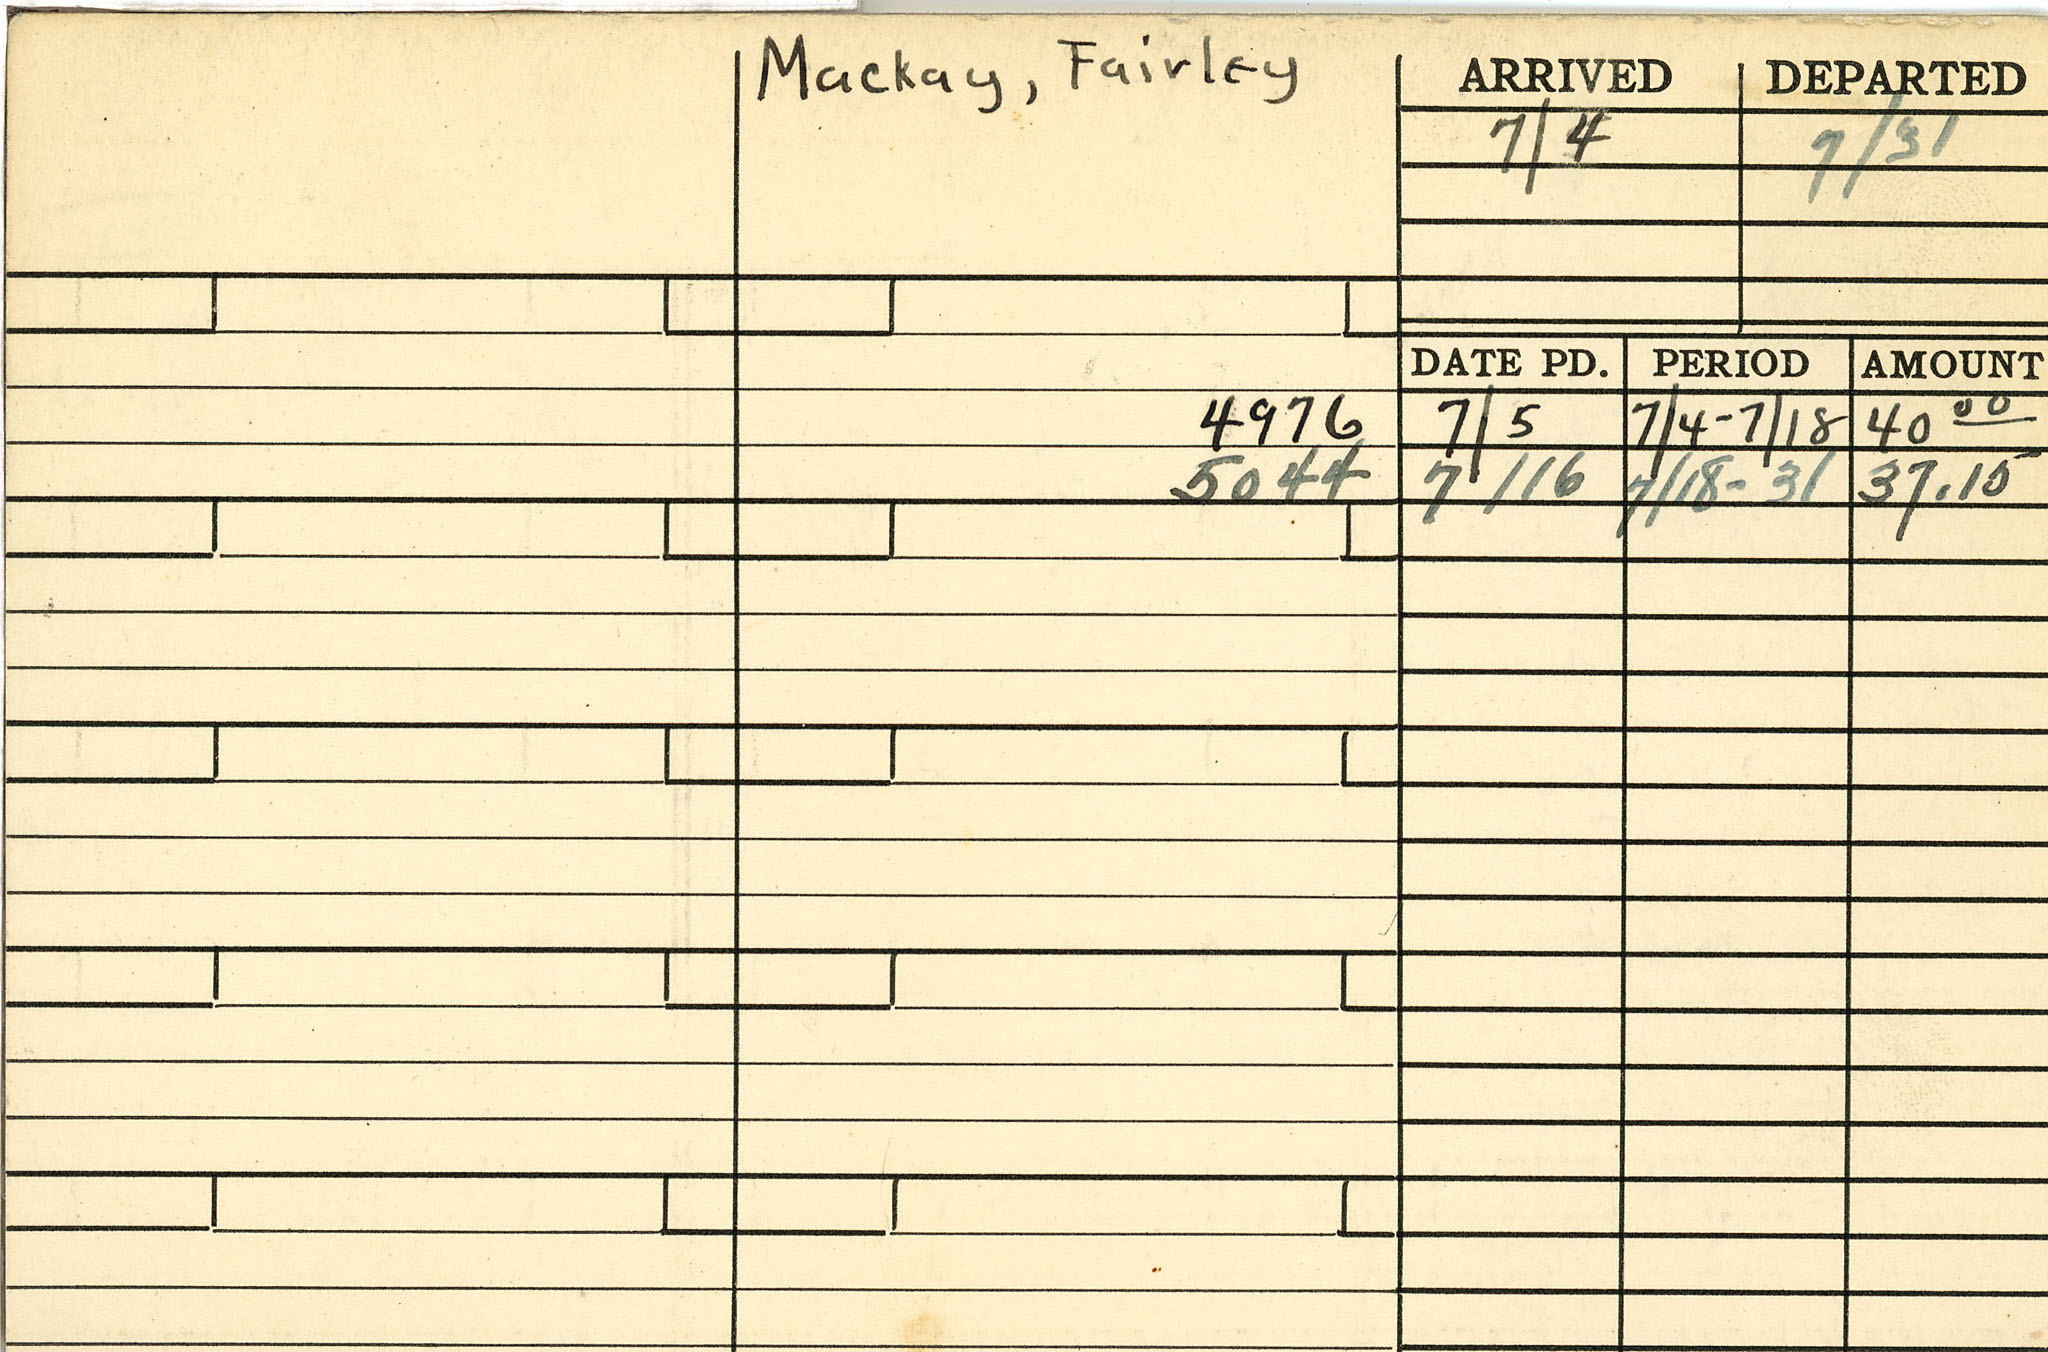 Mackay, Fairley
ARRIVED DEPARTED
7/4 7/31
DATE PD. PERIOD AMOUNT
4976 7/5 7/4-7/18 40 00
5044 7/16 7/18-31 37.15